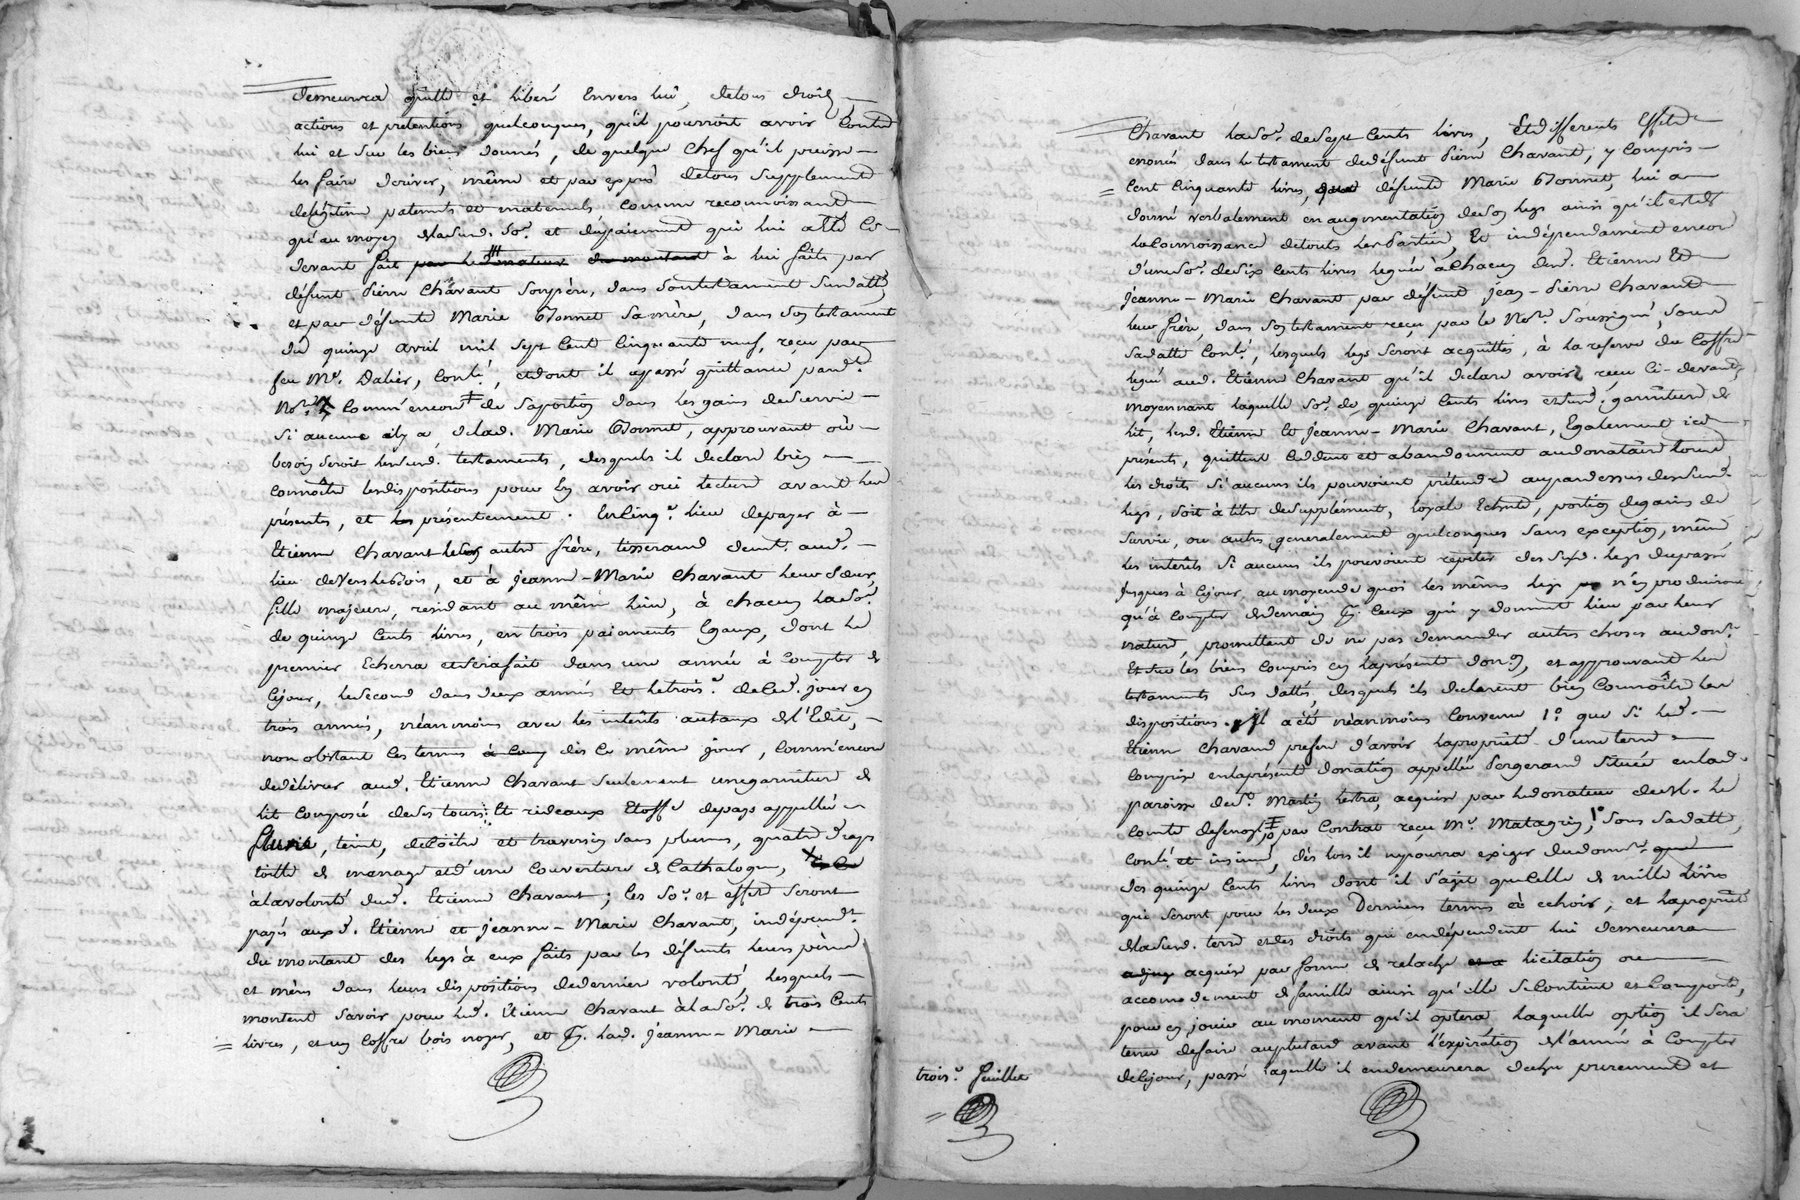 demeurera quitte et liberé Envers lui, detous droits
actions et pretentions quelconques, qu'il pourroit avoir Contre
lui et sur les biens donnés, de quelque Chef qu'il puisse
les faire deriver, même et par exprès detous supplement
delégitime paternels et maternels comme reconnoissant
qu'au moyen dela sud. so.e et dupaiement qui lui a été Ci-
devant fait à lui faits par
défunt Pierre Chavant sonpère, dans sontestament susdatté
et par défunte Marie Bonnet sa mère, dans son testament
du quinze avril mil sept Cent Cinquante neuf, reçu par
feu M.e Dalier, Conlé, etdont il apassé quittance pard.t
No.re Comm'encore de saportion dans les gains deSurvie
Si aucune il y a, delad. Marie Bonnet, approuvant où
besoin seroit lesSusd. testaments, desquels il declare bien
connoître lesdispositions pour les avoir oui lecture avant les
présentes, et présentement. En Cinq.e lieu depayer à
Etienne Chavant autre frère, tisserand demt. aud.
lieu de Vers le Bois, et à jeanne-Marie Chavant leur sœur,
fille majeure, residant au même lieu, à chacun laso.e
de quinze Cents livres, en trois paiements Egaux, dont le
premier Echerra et serafait dans une année à Compter de
Cejour, lesecond dans deux années Et letrois.e deCed. jour en
trois années, néanmoins avec les intérêts autaux del'Edit,
nonobstant les termes dès Ce même jour, Comm'encore
dedélivrer aud. Etienne Chavant seulement une garniture de
lit composée deses tours Et rideaux Etoffe depays appellée
teint, decoitre et traversin sans plumes, quatre draps
toille de menage et d'une couverture de Cathalogne,
àlavolonté dud. Etienne Chavant; les so.e et effets seront
payés auxd. Etienne et jeanne-Marie Chavant, indépend.t
du montant des legs à eux faits par les défunts leurs père
et mère dans leurs dispositions dedernière volonté, lesquels
montent savoir pour led. Etienne Chavant àlaso.e de trois Cents
livres, et un Coffre bois noyer, et p.r lad. jeanne-Marie
Chavant laso.e desept Cents livres, Et differents Effets
enoncés dans le testament dedéfunt Pierre Chavant, y Compris
Cent Cinquante livres, que défunte Marie Bonnet, lui a
donné verbalement en augmentation deson legs ainsi qu'il est de
la Connoissance detoutes les Parties, Et indépendament encore
d'une so.e de six cents livres leguée à Chacun desd. Etienne Et
jeanne-Marie Chavant par défunt jean-Pierre Chavant
leur frère, dans son testament reçu par le No.re soussigné, sous
sadatte Conlé, lesquels legs seront acquittés, à la reserve du Coffre
legué aud. Etienne Chavant qu'il declare avoir reçu Ci-devant,
moyennant laquelle so.e de quinze Cents livres et sud. garniture de
lit, lesd. Etienne et jeanne-Marie Chavant, Egalement ici
présents, quittent Cedent et abandonnent audonataire tous
les droits si aucuns ils pouvoient prétendre aupardessus desSusd.
legs, soit à titre deSupplément, loyale Echute, portion degains de
Survie, ou autres generalement quelconques sans exception, même
les intérêts si aucuns ils pouvoient répéter des susd. legs dupassé
jusques à Cejour, au moyen de quoi les mêmes legs n'en produiront
qu'à compter dedemain p.r Ceux qui y donnent lieu par leur
nature, promettent de ne pas demander autres choses audon.re
Et sur les biens Compris en laprésente don.on, et approuvant les
testaments sus dattés, desquels ils declarent bien Connoître les
dispositions. Il a été néanmoins Convenu 1.o que si led.
Etienne Chavant prefere d'avoir lapropriété d'une terre
Comprise enlaprésente donation appellée Bergerand située enlad.
paroisse de S.t Martin lestra, acquise par ledonateur deM. le
Comte par Contrat reçu M.e Matagrin, sous sadatte,
Conlé et insinué, dès lors il nepourra exiger dudon.re
des quinze Cents livres dont il s'agit que Celle de mille livres
qui seront pour les deux Derniers termes à echoir; et lapropriété
delasusd. terre et des droits qui en dépendent lui demeurera
acquise par forme de relache licitation ou
accomodement de famille ainsi qu'elle se Contient et Comporte,
pour en jouir au moment qu'il optera laquelle option il sera
tenu defaire auplutard avant l'expiration del'année à Compter
deCejour, passé laquelle il en demeurera dechu purement et
trois.e feuillet